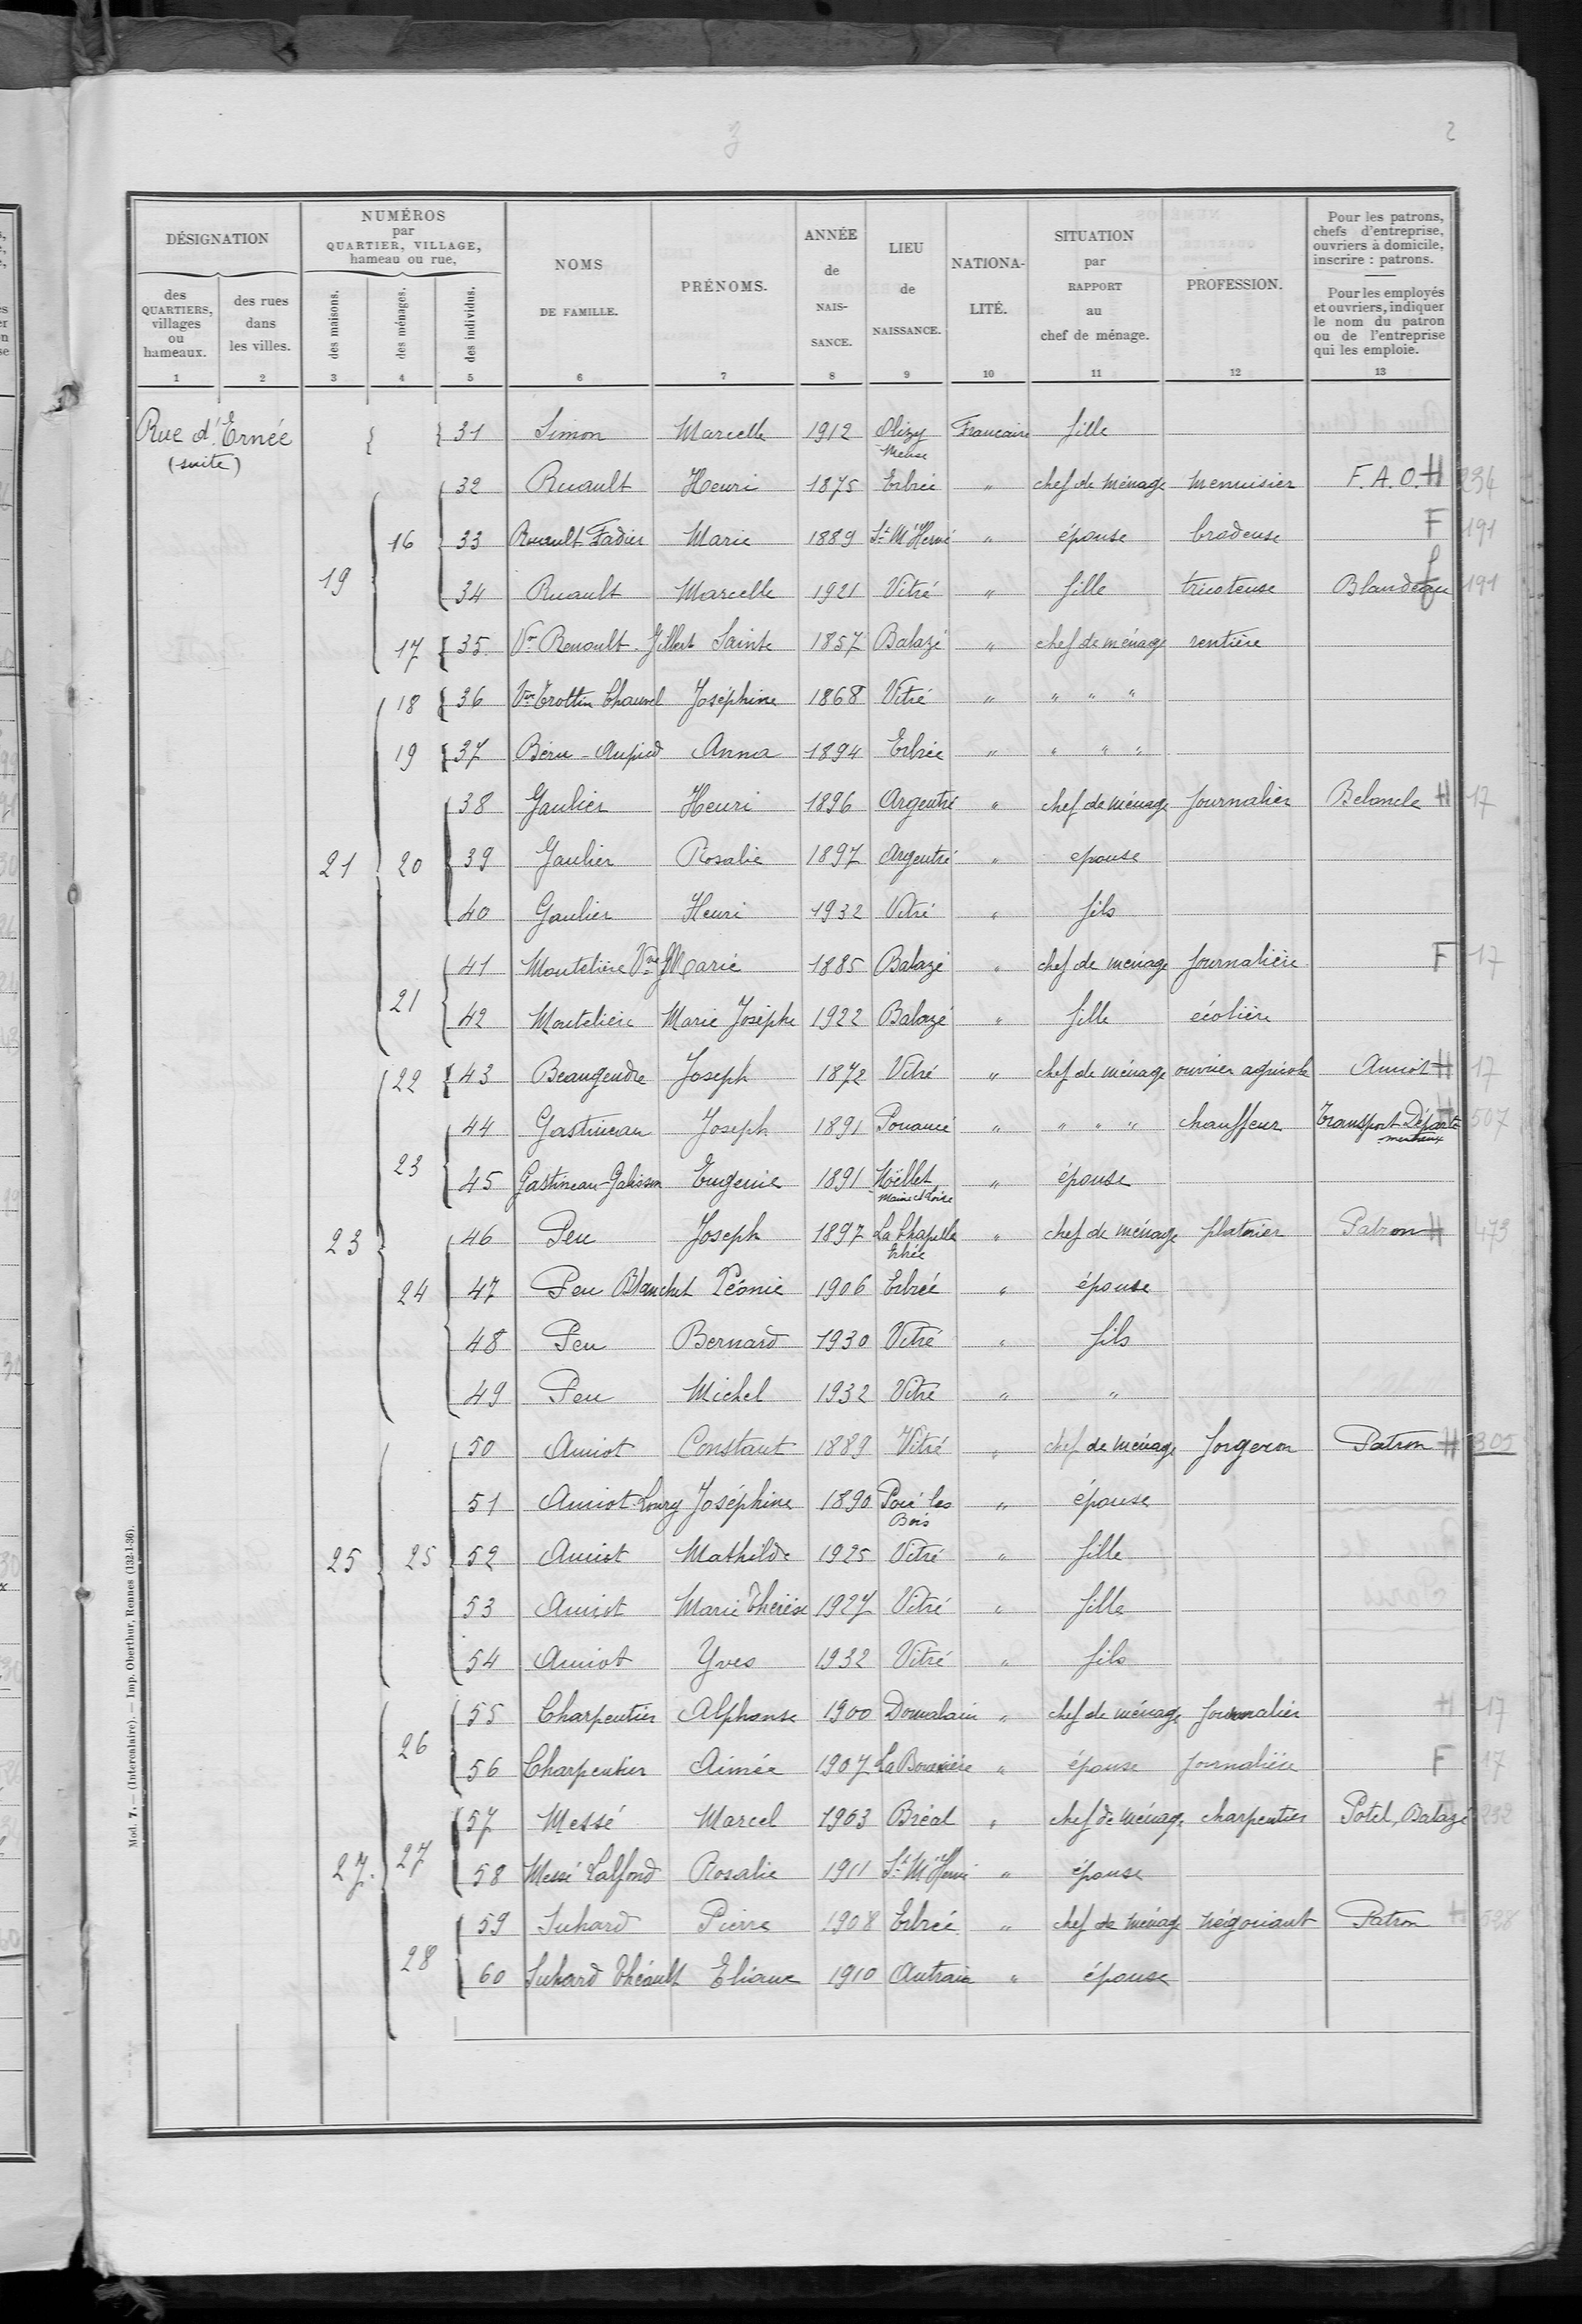 3 2
DÉSIGNATION
des QUARTIERS, villages ou hameaux.
des rues dans les villes.
NUMÉROS par QUARTIER, VILLAGE, hameau ou rue,
des maisons. des ménages. des individus.
NOMS DE FAMILLE.
PRÉNOMS.
ANNÉE de NAIS- SANCE.
LIEU de NAISSANCE.
NATIONA- LITÉ.
SITUATION par RAPPORT au chef de ménage.
PROFESSION.
Pour les patrons, chefs d'entreprise, ouvriers à domicile, inscrire : patrons.
Pour les employés et ouvriers, indiquer le nom du patron ou de l'entreprise qui les emploie.
1 2 3 4 5 6 7 8 9 10 11 12 13
Rue d'Ernée 31 Simon Marcelle 1912 Olizy Meuse Française fille
(suite)
32 Ruault Henri 1875 Erbrée " chef de ménage menuisier F. A. O. H 234
16 33 Ruault Fadier Marie 1889 St M'Hervé " épouse brodeuse F 191
19 34 Ruault Marcelle 1921 Vitré " fille tricoteuse Blandeau f 191
17 35 Vve Renault-Gillert Sainte 1857 Balazé " chef de ménage rentière
18 36 Vve Trottin Chauvel Joséphine 1868 Vitré " " " "
19 37 Béru-Aupied Anna 1894 Erbrée " " " "
38 Gaulier Henri 1896 Argentré " chef de ménage journalier Belancle H 17
21 20 39 Gaulier Rosalie 1897 Argentré " epouse
40 Gaulier Henri 1932 Vitré " fils
41 Moutelière Vve Marie 1885 Balazé " chef de ménage journalière F 17
21 42 Moutelière Marie Josèphe 1922 Balazé " fille écolière
22 43 Beaugendre Joseph 1872 Vitré " chef de ménage ouvrier agricole Amiot H 17
44 Gastineau Joseph 1891 Pouancé " " " " chauffeur Transport Départementaux H 507
23 45 Gastineau-Galisson Eugenie 1891 Noëllet Maine et Loire " épouse
23 46 Peu Joseph 1897 La Chapelle Erbrée " chef de ménage platrier Patron H 473
24 47 Peu Blanchet Léonie 1906 Erbrée " épouse
48 Peu Bernard 1930 Vitré " fils
49 Peu Michel 1932 Vitré " "
50 Amiot Constant 1889 Vitré " chef de ménage forgeron Patron H 305
51 Amiot-Loury Joséphine 1890 Pocé les Bois " épouse
25 25 52 Amiot Mathilde 1925 Vitré " fille
53 Amiot Marie Thérèse 1927 Vitré " fille
54 Amiot Yves 1932 Vitré " fils
55 Charpentier Alphonse 1900 Domalain " chef de ménage journalier H 17
26 56 Charpentier Aimée 1907 La Bouexière " épouse journalière F 17
57 Messé Marcel 1903 Bréal " chef de ménage charpentier Potel, Balazé 232
27. 27 58 Messé Lalfond Rosalie 1911 St M'Hervé " épouse
59 Suhard Pierre 1908 Erbrée " chef de ménage négociant Patron H 528
28 60 Suhard Théault Eliane 1910 Antrain " épouse
Mod. 7. — (Intercalaire). — Imp. Oberthur, Rennes (132-1-36).